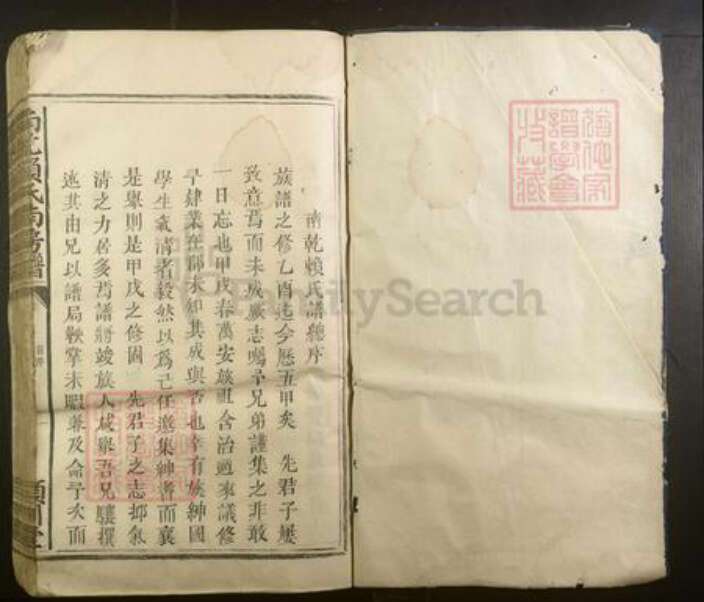 猶他家
譜學會
收藏
南乾賴氏譜總序
族譜之修乙酉迄今歷五甲矣 先君子屢
致意焉而未成厥志囑予兄弟謹集之非敢
一日忘也甲戌春萬安族祖含治過來議修
予肄業在郡未知其成與否也幸有族紳國
學生 清者毅然以爲己任邀集紳耆而襄
是舉則是甲戌之修固 先君子之志抑氣
清之力居多焉譜將竣族人咸舉吾兄驥撰
述其由兄以譜局鞅掌未暇兼及命予次而
南乾賴氏南房譜
FamilySearch